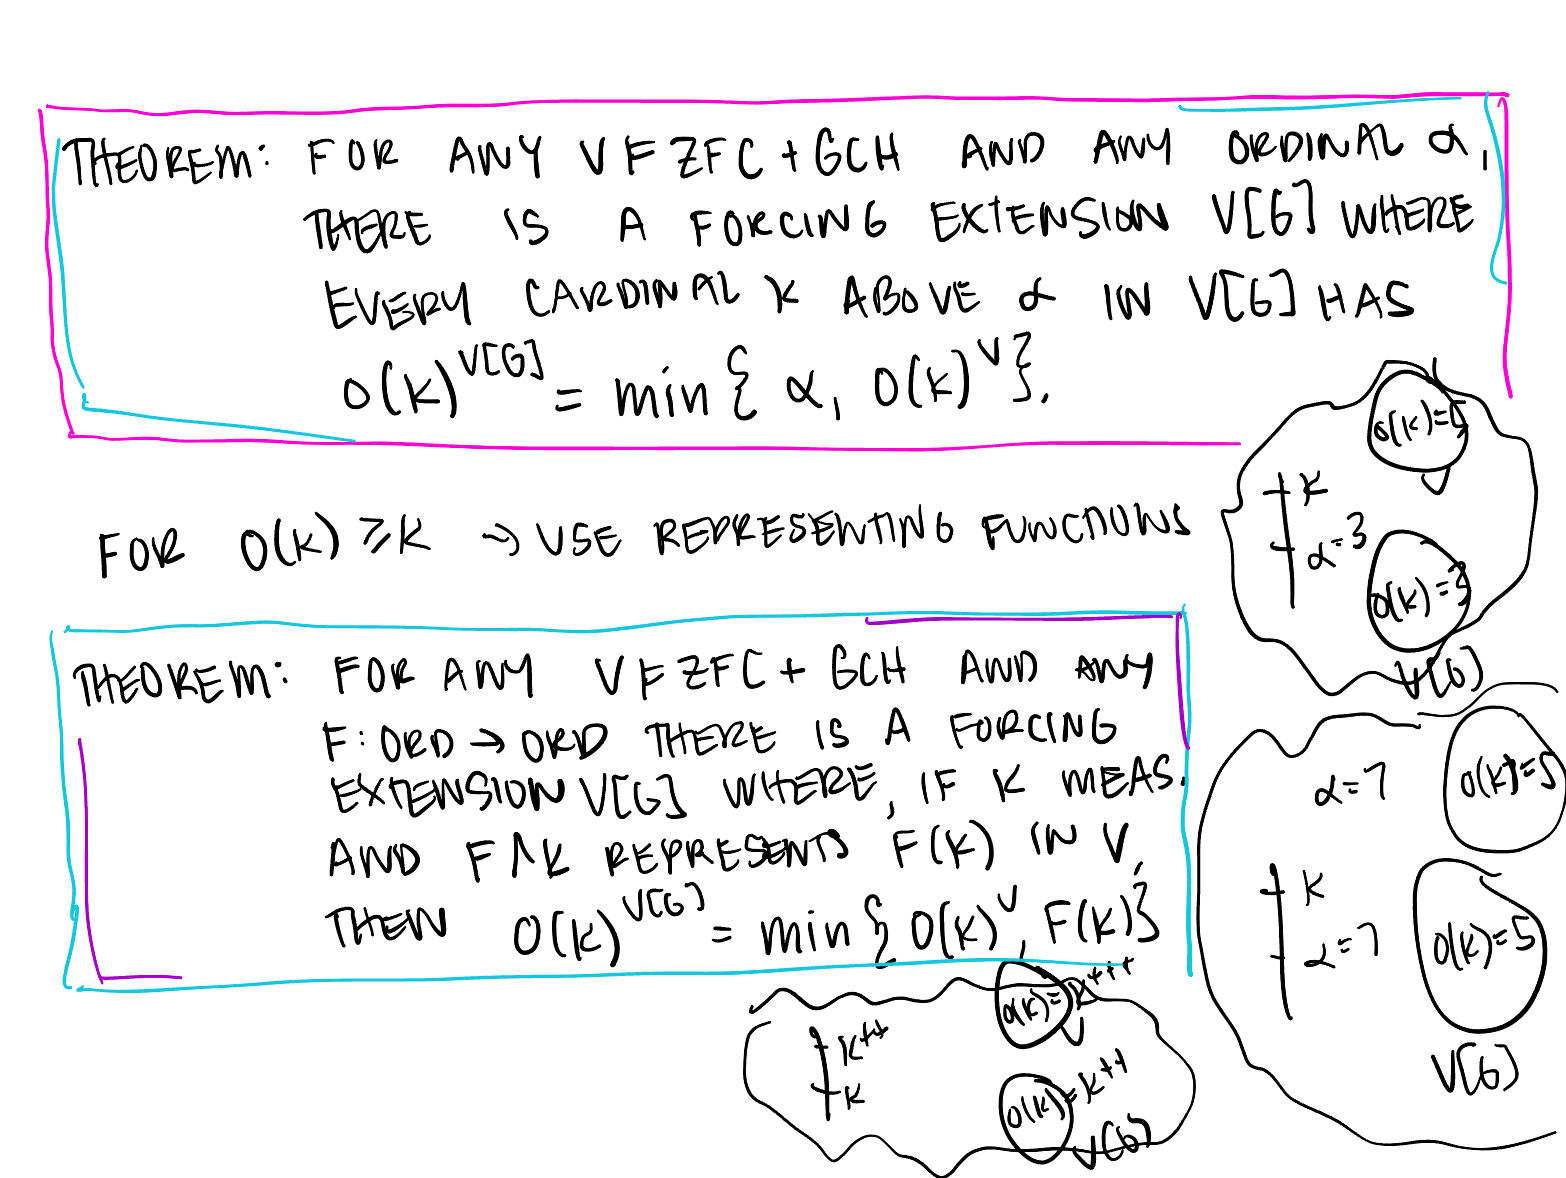 THEOREM: FOR ANY V ⊨ ZFC + GCH AND ANY ORDINAL α,
THERE IS A FORCING EXTENSION V[G] WHERE
EVERY CARDINAL κ ABOVE α IN V[G] HAS
o(κ)^V[G] = min { α, o(κ)^V }.
o(κ)=5
V
κ
α=3
o(κ)=3
V[G]
FOR o(κ) ≥ κ → USE REPRESENTING FUNCTIONS
THEOREM: FOR ANY V ⊨ ZFC + GCH AND ANY
F: ORD → ORD THERE IS A FORCING
EXTENSION V[G] WHERE, IF κ MEAS.
AND F↾κ REPRESENTS F(κ) IN V,
THEN o(κ)^V[G] = min { o(κ)^V, F(κ) }
α=7
o(κ)=5
κ
α=7
o(κ)=5
V[G]
o(κ)=κ+++
V
κ++
κ
o(κ)=κ++
V[G]